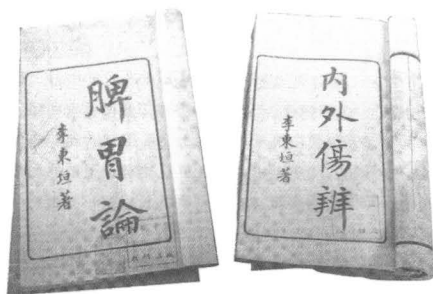 脾胃論
李東垣著
内外傷辨
李東垣著